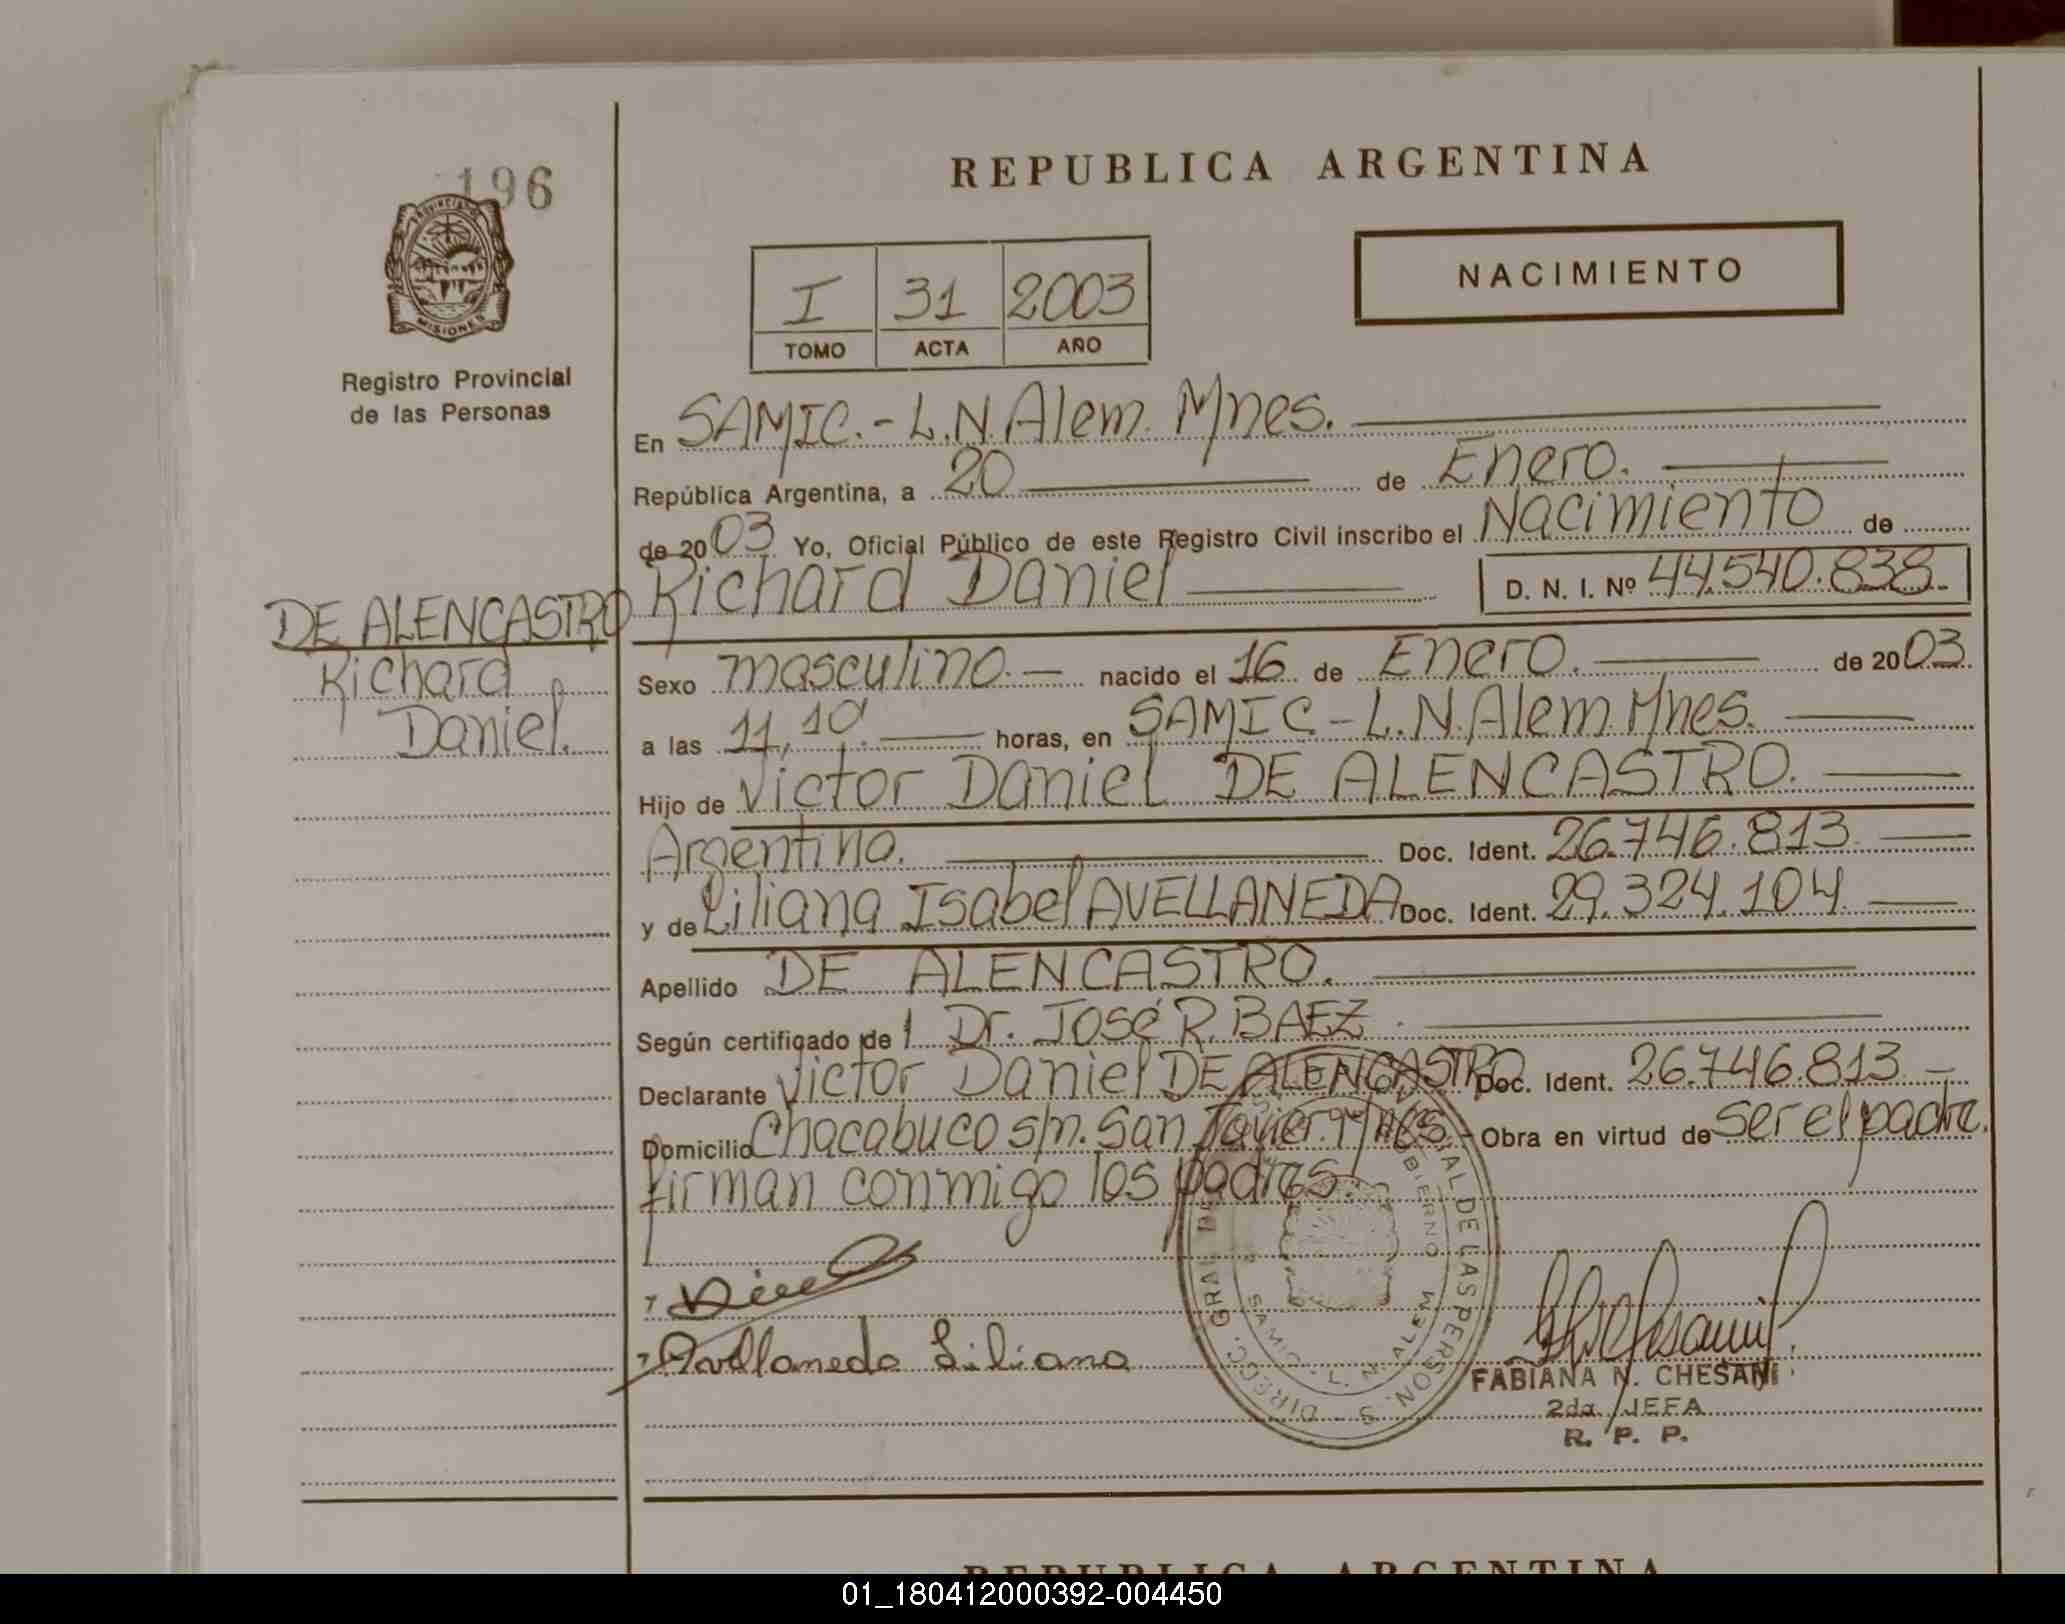 196
PROVINCIA DE
MISIONES
Registro Provincial
de las Personas
DE ALENCASTRO
Richard
Daniel.
REPUBLICA ARGENTINA
NACIMIENTO
I 31 2003
TOMO ACTA AÑO
En SAMIC.- L.N.Alem. Mnes.
República Argentina, a 20 de Enero.
de 2003 Yo, Oficial Público de este Registro Civil inscribo el Nacimiento de
Richard Daniel D. N. I. Nº 44.540.838.
Sexo masculino.- nacido el 16 de Enero. de 2003.
a las 11,10. horas, en SAMIC - L.N.Alem.Mnes.
Hijo de Victor Daniel DE ALENCASTRO.
Argentino. Doc. Ident. 26.746.813
y de Liliana Isabel AVELLANEDA Doc. Ident. 29.324.104
Apellido DE ALENCASTRO.
Según certificado de l Dr. José R. BAEZ
Declarante Victor Daniel DE ALENCASTRO Doc. Ident. 26.746.813 -
Domicilio Chacabuco s/n. San Javier. Mnes.- Obra en virtud de ser el padre.
firman conmigo los padres.
Avellaneda Liliana
DIRECC. GRAL DE LAS PERSON. S
SAMIC. L. N. ALEM
FABIANA N. CHESANI
2da JEFA
R. P. P.
REPUBLICA ARGENTINA
01_180412000392-004450